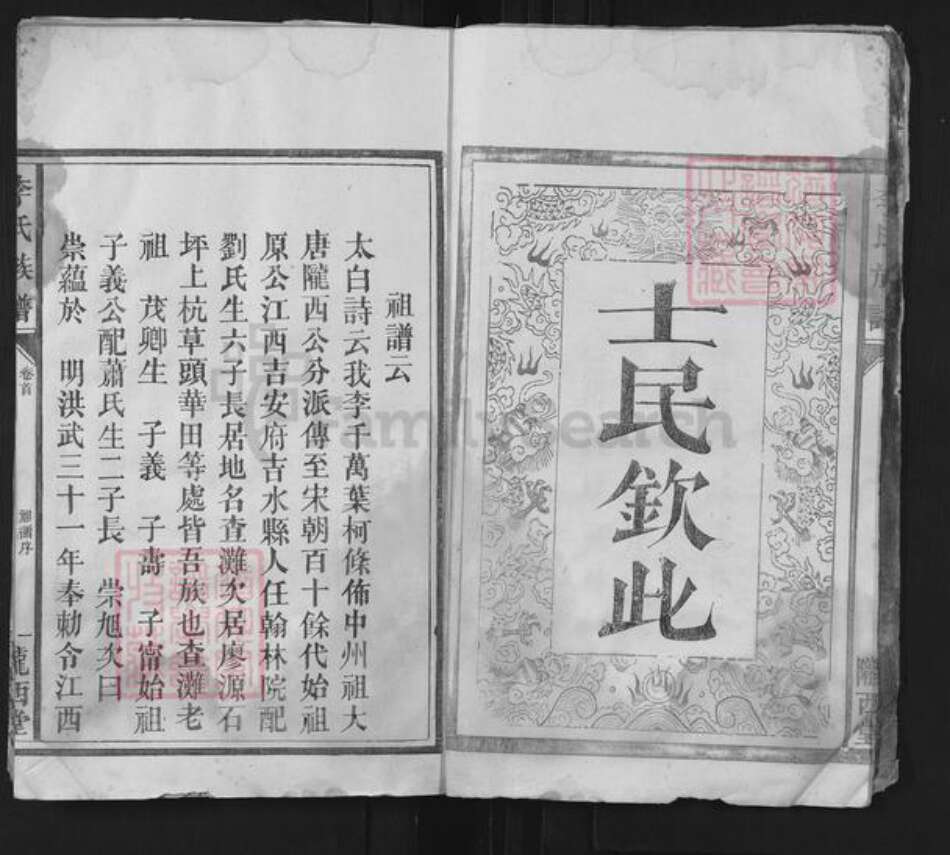 士民欽此
隴西堂
祖譜云
太白詩云我李千萬葉柯條佈中州祖大
唐隴西公分派傳至宋朝百十餘代始祖
原公江西吉安府吉水縣人任翰林院配
劉氏生六子長居地名查灘次居廖源石
坪上杭草頭華田等處皆吾族也查灘老
祖　茂卿生　子義　子壽　子甯始祖
子義公配蕭氏生二子長　崇旭次曰
崇蘊於　明洪武三十一年奉勅令江西
李氏族譜
卷首
序
一
隴西堂
familysearch